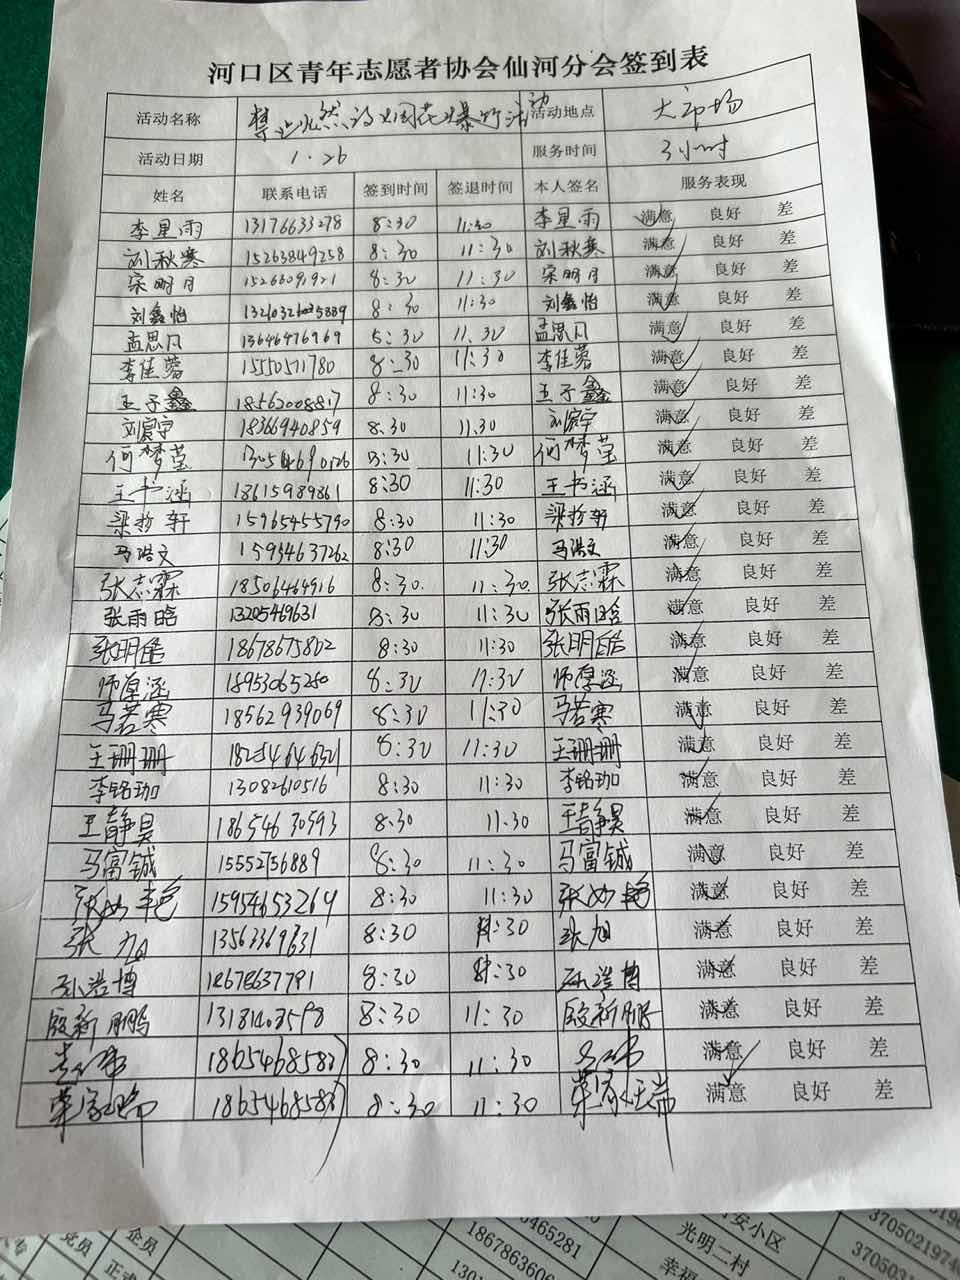 河口区青年志愿者协会仙河分会签到表
活动名称 禁止燃放烟花爆竹活动 活动地点 大市场
活动日期 1.26 服务时间 3小时
姓名 联系电话 签到时间 签退时间 本人签名 服务表现
李星雨 13176633278 8:30 11:30 李星雨 满意 良好 差
刘秋寒 15263849258 8:30 11:30 刘秋寒 满意 良好 差
宋明月 8:30 11:30 宋明月 满意 良好 差
刘鑫怡 8:30 11:30 刘鑫怡 满意 良好 差
孟思凡 13646476969 8:30 11.30 孟思凡 满意 良好 差
李佳蓉 15550571780 8:30 11:30 李佳蓉 满意 良好 差
王子鑫 18562008817 8:30 11:30 王子鑫 满意 良好 差
刘宸宇 18366940859 8.30 11.30 刘宸宇 满意 良好 差
何梦莹 13054690126 8:30 11:30 何梦莹 满意 良好 差
王书涵 18615989861 8:30 11:30 王书涵 满意 良好 差
梁扮轩 15965455790 8:30 11:30 梁扮轩 满意 良好 差
马浩文 15954637262 8:30 11:30 马浩文 满意 良好 差
张志霖 18506464916 8:30. 11:30. 张志霖 满意 良好 差
张雨晗 13205469631 8:30 11:30 张雨晗 满意 良好 差
张明皓 18678675802 8:30 11:30 张明皓 满意 良好 差
师厚涵 18953065280 8:30 11:30 师厚涵 满意 良好 差
马若寒 18562939069 8:30 11:30 马若寒 满意 良好 差
王珊珊 8:30 11:30 王珊珊 满意 良好 差
李铭珈 13082610516 8:30 11:30 李铭珈 满意 良好 差
王静昊 18654630593 8:30 11:30 王静昊 满意 良好 差
马富铖 15552756889 8:30 11:30 马富铖 满意 良好 差
张妙艳 15954653264 8:30 11:30 张妙艳 满意 良好 差
张旭 13563369631 8:30 11:30 张旭 满意 良好 差
孙浩博 18678637791 8:30 11:30 孙浩博 满意 良好 差
殷新鹏 13181403598 8:30 11:30 殷新鹏 满意 良好 差
18654685837 8:30 11:30 满意 良好 差
荣家瑞 18654685837 8:30 11:30 荣家瑞 满意 良好 差
党员 企员 5465281 安小区 37050219740
正式 18678636066 光明二村 370503
1301 幸福